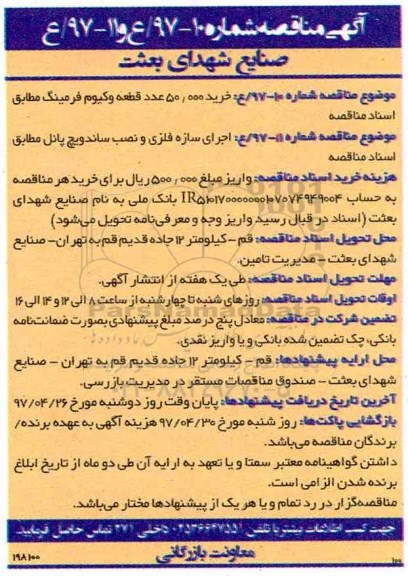 آگهی مناقصه شماره ۱۰-۹۷/ع و ۱۱-۹۷/ع
صنایع شهدای بعثت
موضوع مناقصه شماره ۱۰-۹۷/ع: خرید ۵۰,۰۰۰ عدد قطعه وکیوم فرمینگ مطابق
اسناد مناقصه
موضوع مناقصه شماره ۱۱-۹۷/ع: اجرای سازه فلزی و نصب ساندویچ پانل مطابق
اسناد مناقصه
هزینه خرید اسناد مناقصه: واریز مبلغ ۵۰۰,۰۰۰ ریال برای خرید هر مناقصه
به حساب بانک ملی به نام صنایع شهدای
بعثت (اسناد در قبال رسید واریز وجه و معرفی‌نامه تحویل می‌شود)
محل تحویل اسناد مناقصه: قم - کیلومتر ۱۲ جاده قدیم قم به تهران - صنایع
شهدای بعثت - مدیریت تامین.
مهلت تحویل اسناد مناقصه: طی یک هفته از انتشار آگهی.
اوقات تحویل اسناد مناقصه: روزهای شنبه تا چهارشنبه از ساعت ۸ الی ۱۲ و ۱۴ الی ۱۶
تضمین شرکت در مناقصه: معادل پنج درصد مبلغ پیشنهادی بصورت ضمانت‌نامه
بانکی، چک تضمین شده بانکی و یا واریز نقدی.
محل ارایه پیشنهادها: قم - کیلومتر ۱۲ جاده قدیم قم به تهران - صنایع
شهدای بعثت - صندوق مناقصات مستقر در مدیریت بازرسی.
آخرین تاریخ دریافت پیشنهادها: پایان وقت روز دوشنبه مورخ ۹۷/۰۴/۲۶
بازگشایی پاکت‌ها: روز شنبه مورخ ۹۷/۰۴/۳۰ هزینه آگهی به عهده برنده/
برندگان مناقصه می‌باشد.
داشتن گواهینامه معتبر سمتا و یا تعهد به ارایه آن طی دو ماه از تاریخ ابلاغ
برنده شدن الزامی است.
مناقصه‌گزار در رد تمام و یا هر یک از پیشنهادها مختار می‌باشد.
جهت کسب اطلاعات بیشتر با تلفن ۰۲۵۳۶۶۴۲۵۵۱ داخلی ۲۷۱ تماس حاصل فرمایید.
معاونت بازرگانی
۱۹۸۱۰۰